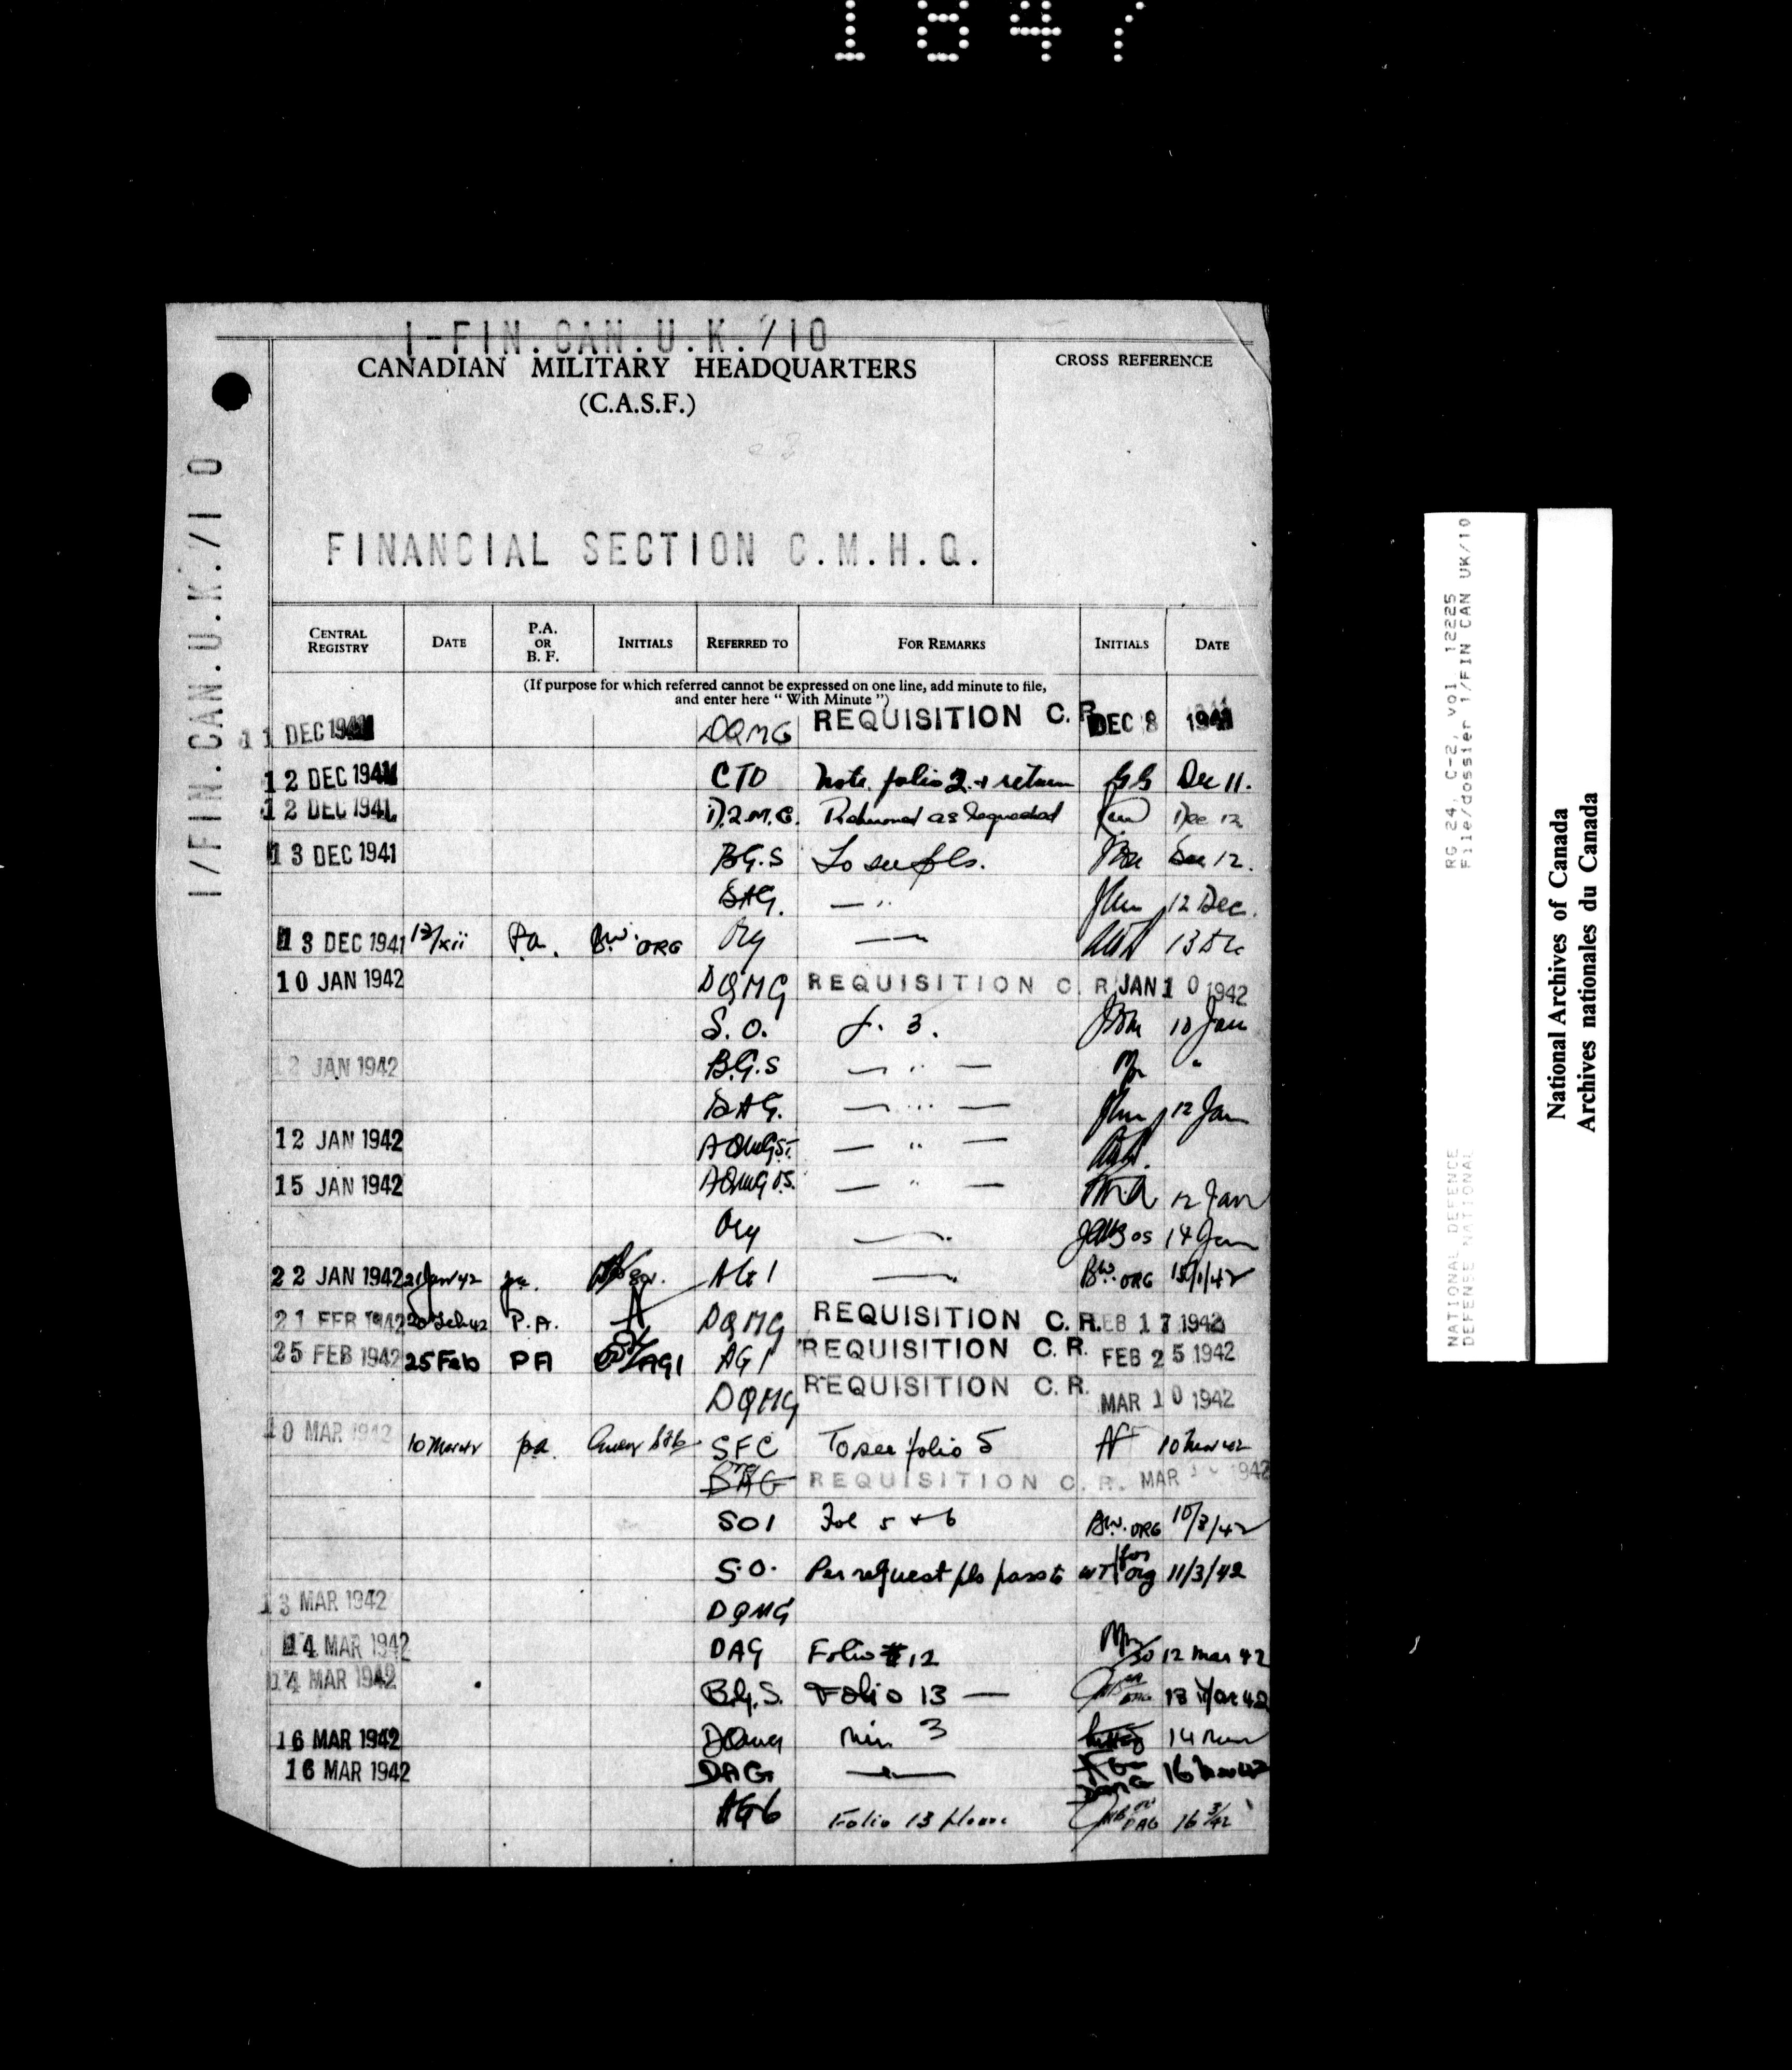 1847
1-FIN.CAN.U.K./10
CANADIAN MILITARY HEADQUARTERS
(C.A.S.F.)
CROSS REFERENCE
1/FIN.CAN.U.K./10
FINANCIAL SECTION C.M.H.Q.
CENTRAL REGISTRY DATE P.A. OR B.F. INITIALS REFERRED TO FOR REMARKS INITIALS DATE
(If purpose for which referred cannot be expressed on one line, add minute to file,
and enter here " With Minute ")
11 DEC 1941 DQMG REQUISITION C.R. DEC 8 1941
12 DEC 1941 CTO Note folio 2 + return Dec 11.
12 DEC 1941 D.Q.M.G. Returned as requested Dec 12
13 DEC 1941 B.G.S To see fls. Dec 12.
DAG. — " 12 Dec.
13 DEC 1941 13/xii P.a. B.W. ORG Org — 13 Dec
10 JAN 1942 DQMG REQUISITION C.R. JAN 10 1942
S.O. f. 3. 10 Jan
12 JAN 1942 B.G.S — " — "
DAG. — " — 12 Jan
12 JAN 1942 AQMG — " —
15 JAN 1942 AQMG — " — 12 Jan
Org — 14 Jan
22 JAN 1942 21 Jan 42 pa. AG 1 — B.W. ORG 15/1/42
21 FEB 1942 20 Feb 42 P.A. DQMG REQUISITION C.R. FEB 17 1942
25 FEB 1942 25 Feb PA AG1 AG1 REQUISITION C.R. FEB 25 1942
DQMG REQUISITION C.R. MAR 10 1942
10 MAR 1942 10 Mar 42 pa. SFC To see folio 5 10 Mar 42
REQUISITION C.R. MAR 1942
SO1 Fol 5 + 6 B.W. ORG 10/3/42
S.O. Per request pls pass to WT for org 11/3/42
13 MAR 1942 DQMG
14 MAR 1942 DAG Folio # 12 12 Mar 42
14 MAR 1942 B.G.S. Folio 13 — 13 Mar 42
16 MAR 1942 DQMG Min 3 14 Mar
16 MAR 1942 DAG — 16 Mar 42
AG6 Folio 13 please DAG 16 3/42
RG 24, C-2, vol. 12225
File/dossier 1/FIN CAN UK/10
NATIONAL DEFENCE
DEFENSE NATIONAL
National Archives of Canada
Archives nationales du Canada